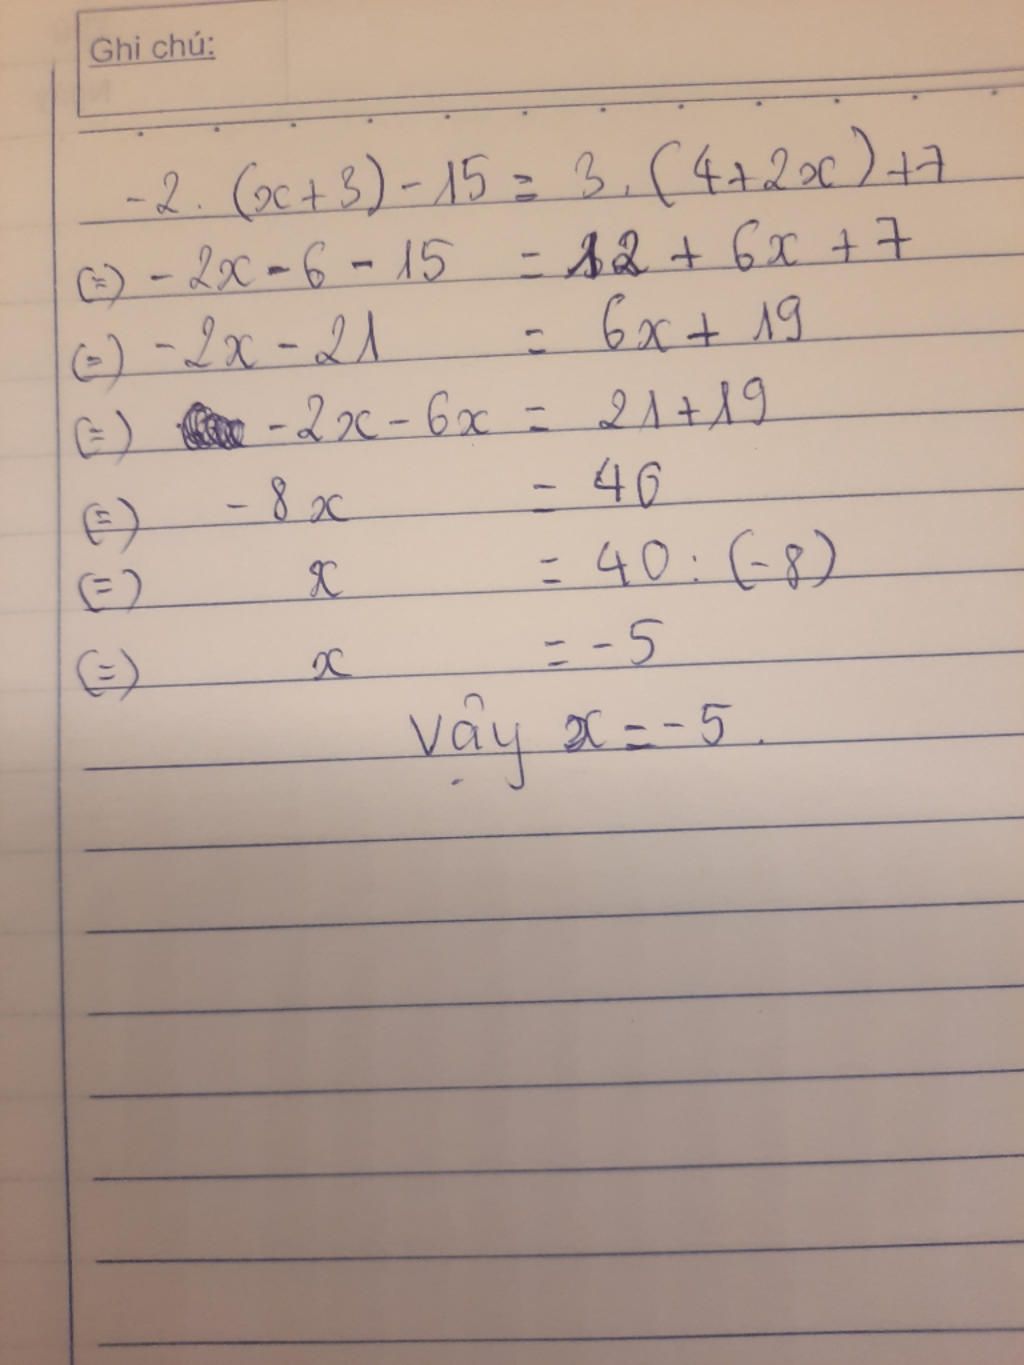 Ghi chú:
-2. (x+3) - 15 = 3. (4+2x) +7
(=) - 2x - 6 - 15 = 12 + 6x + 7
(=) - 2x - 21 = 6x + 19
(=) - 2x - 6x = 21 + 19
(=) - 8x = 40
(=) x = 40 : (-8)
(=) x = - 5
Vậy x = - 5.